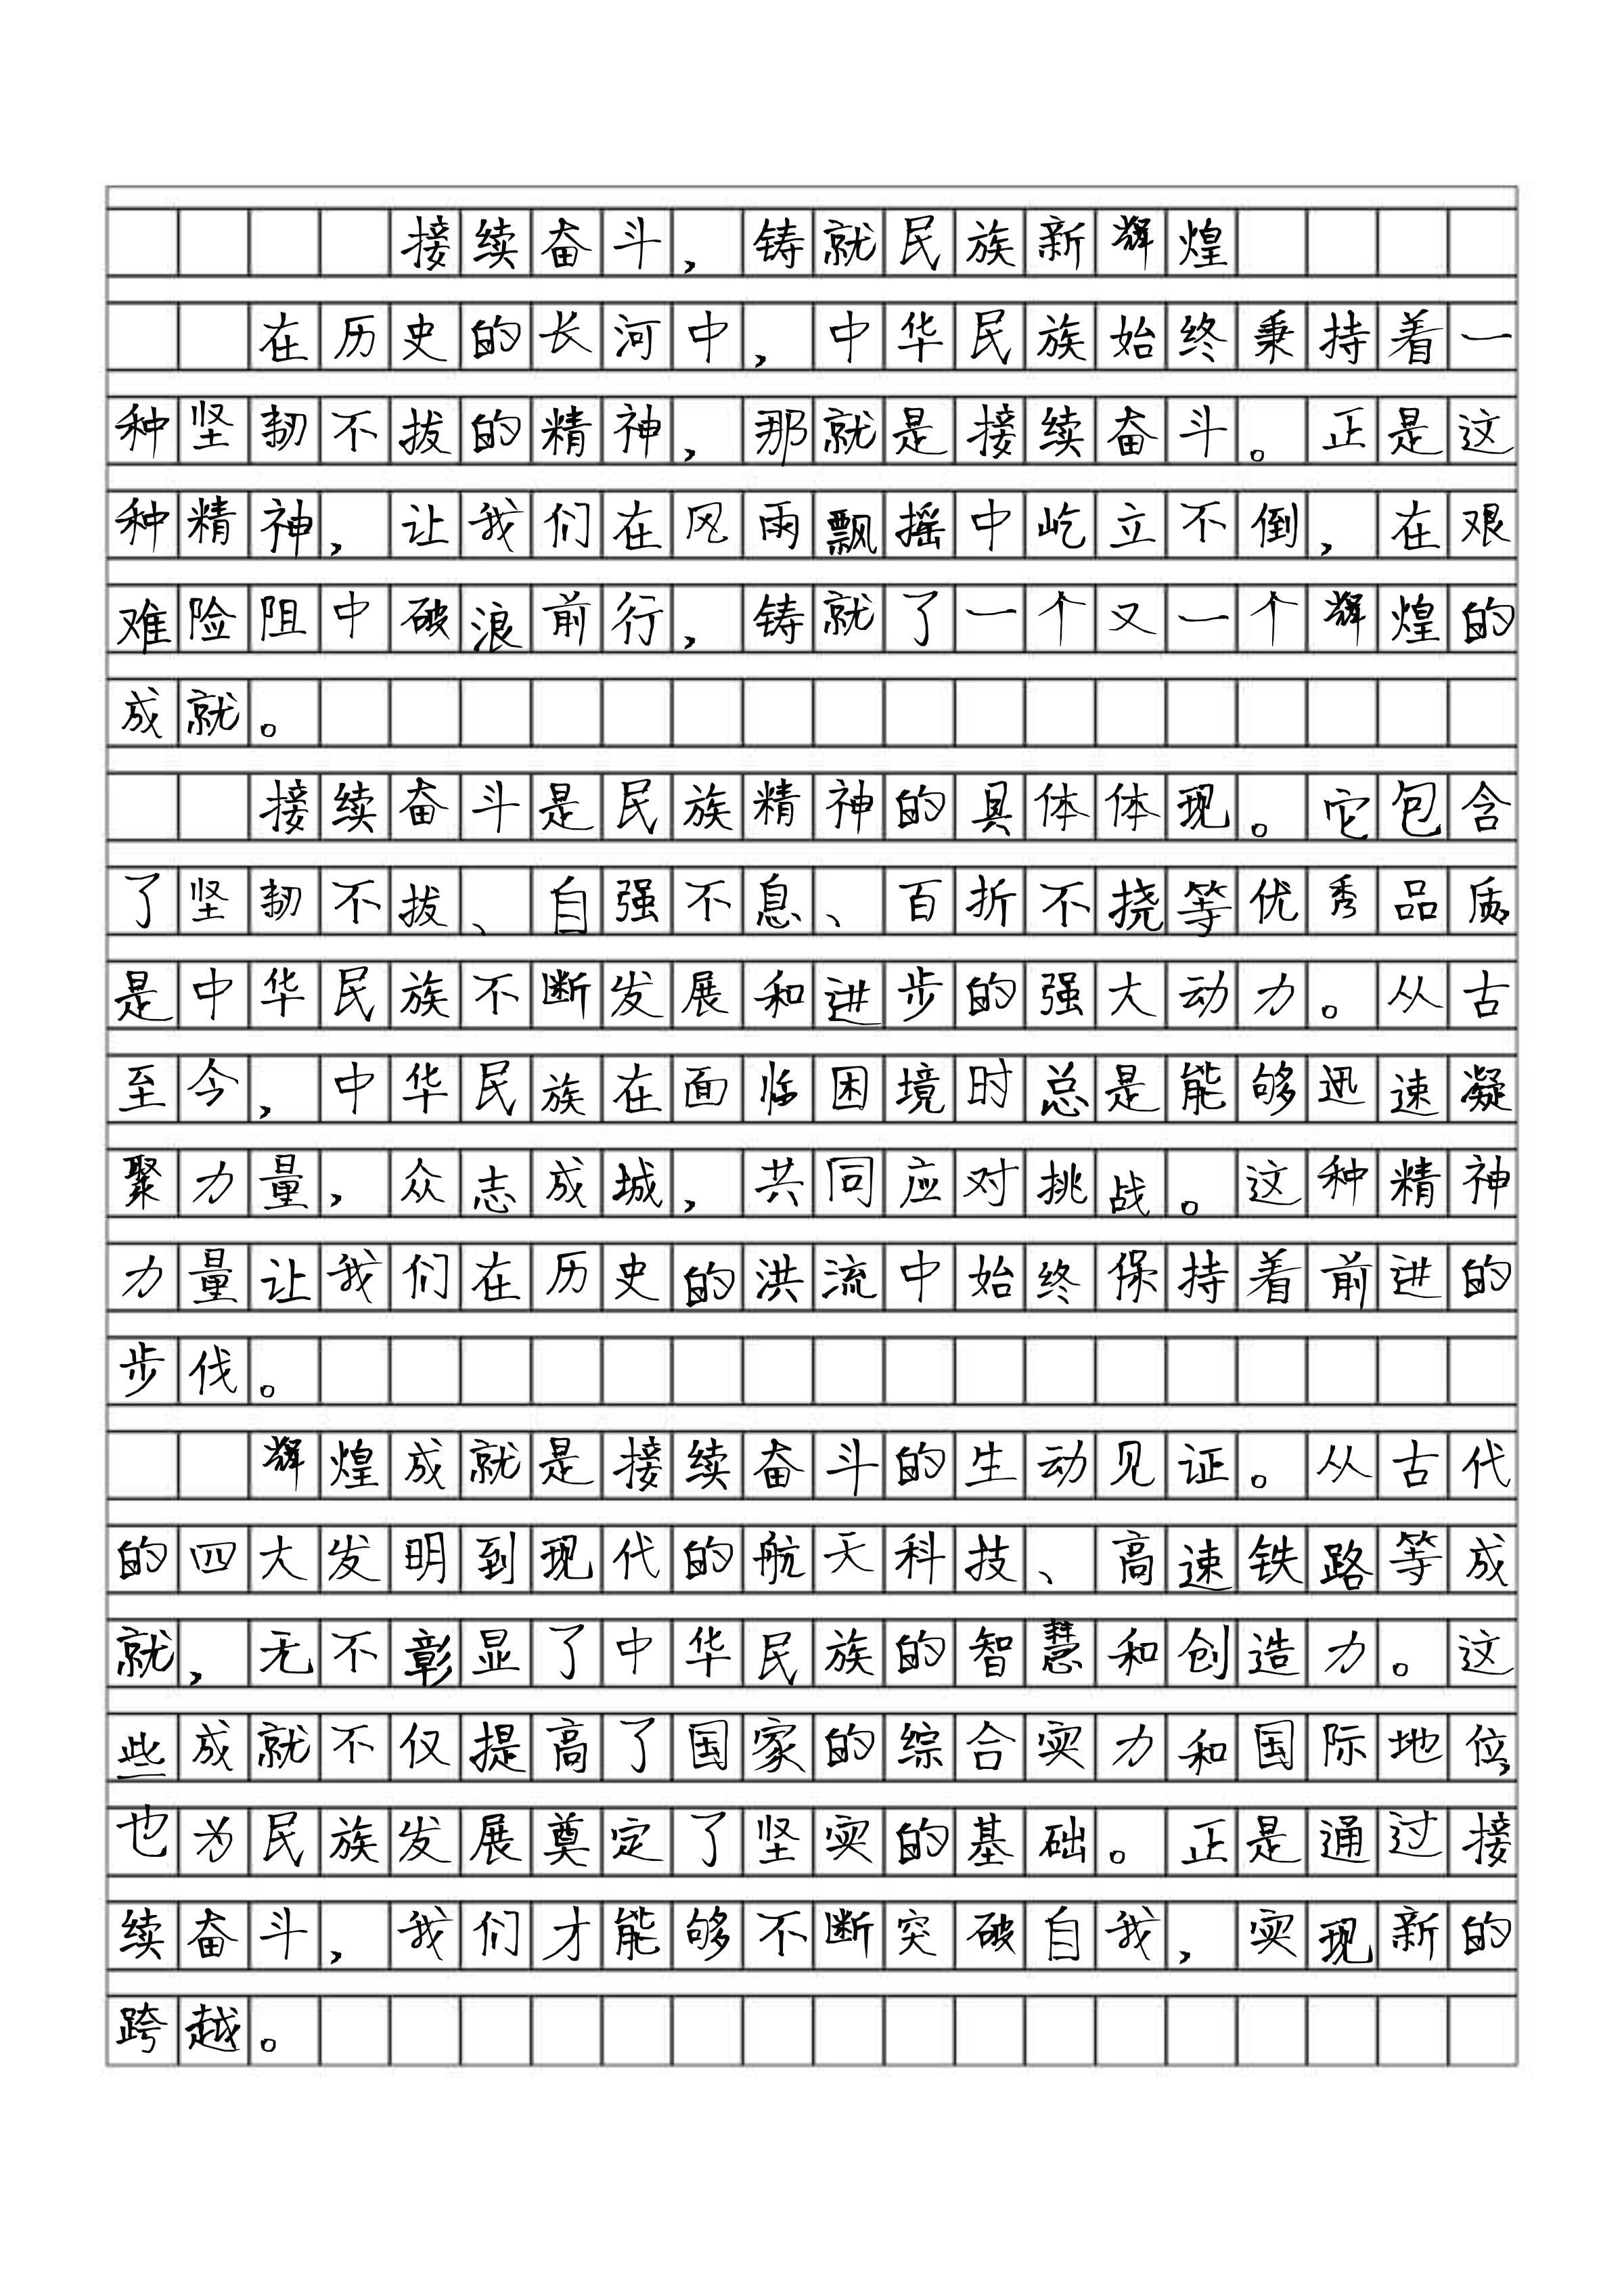 接续奋斗，铸就民族新辉煌
在历史的长河中，中华民族始终秉持着一
种坚韧不拔的精神，那就是接续奋斗。正是这
种精神，让我们在风雨飘摇中屹立不倒，在艰
难险阻中破浪前行，铸就了一个又一个辉煌的
成就。
接续奋斗是民族精神的具体体现。它包含
了坚韧不拔、自强不息、百折不挠等优秀品质，
是中华民族不断发展和进步的强大动力。从古
至今，中华民族在面临困境时总是能够迅速凝
聚力量，众志成城，共同应对挑战。这种精神
力量让我们在历史的洪流中始终保持着前进的
步伐。
辉煌成就是接续奋斗的生动见证。从古代
的四大发明到现代的航天科技、高速铁路等成
就，无不彰显了中华民族的智慧和创造力。这
些成就不仅提高了国家的综合实力和国际地位，
也为民族发展奠定了坚实的基础。正是通过接
续奋斗，我们才能够不断突破自我，实现新的
跨越。